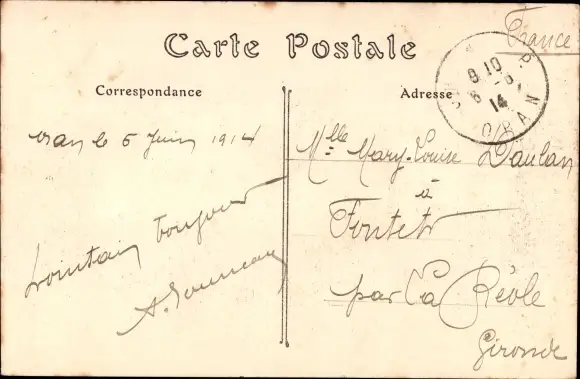 France
Carte Postale
Correspondance
Adresse
8 10
6 -6
14
ORAN
Oran le 5 Juin 1914
Mlle Mary-Louise Daulan
à
Fontet
Lointain Toujours
par La Réole
A.
Gironde